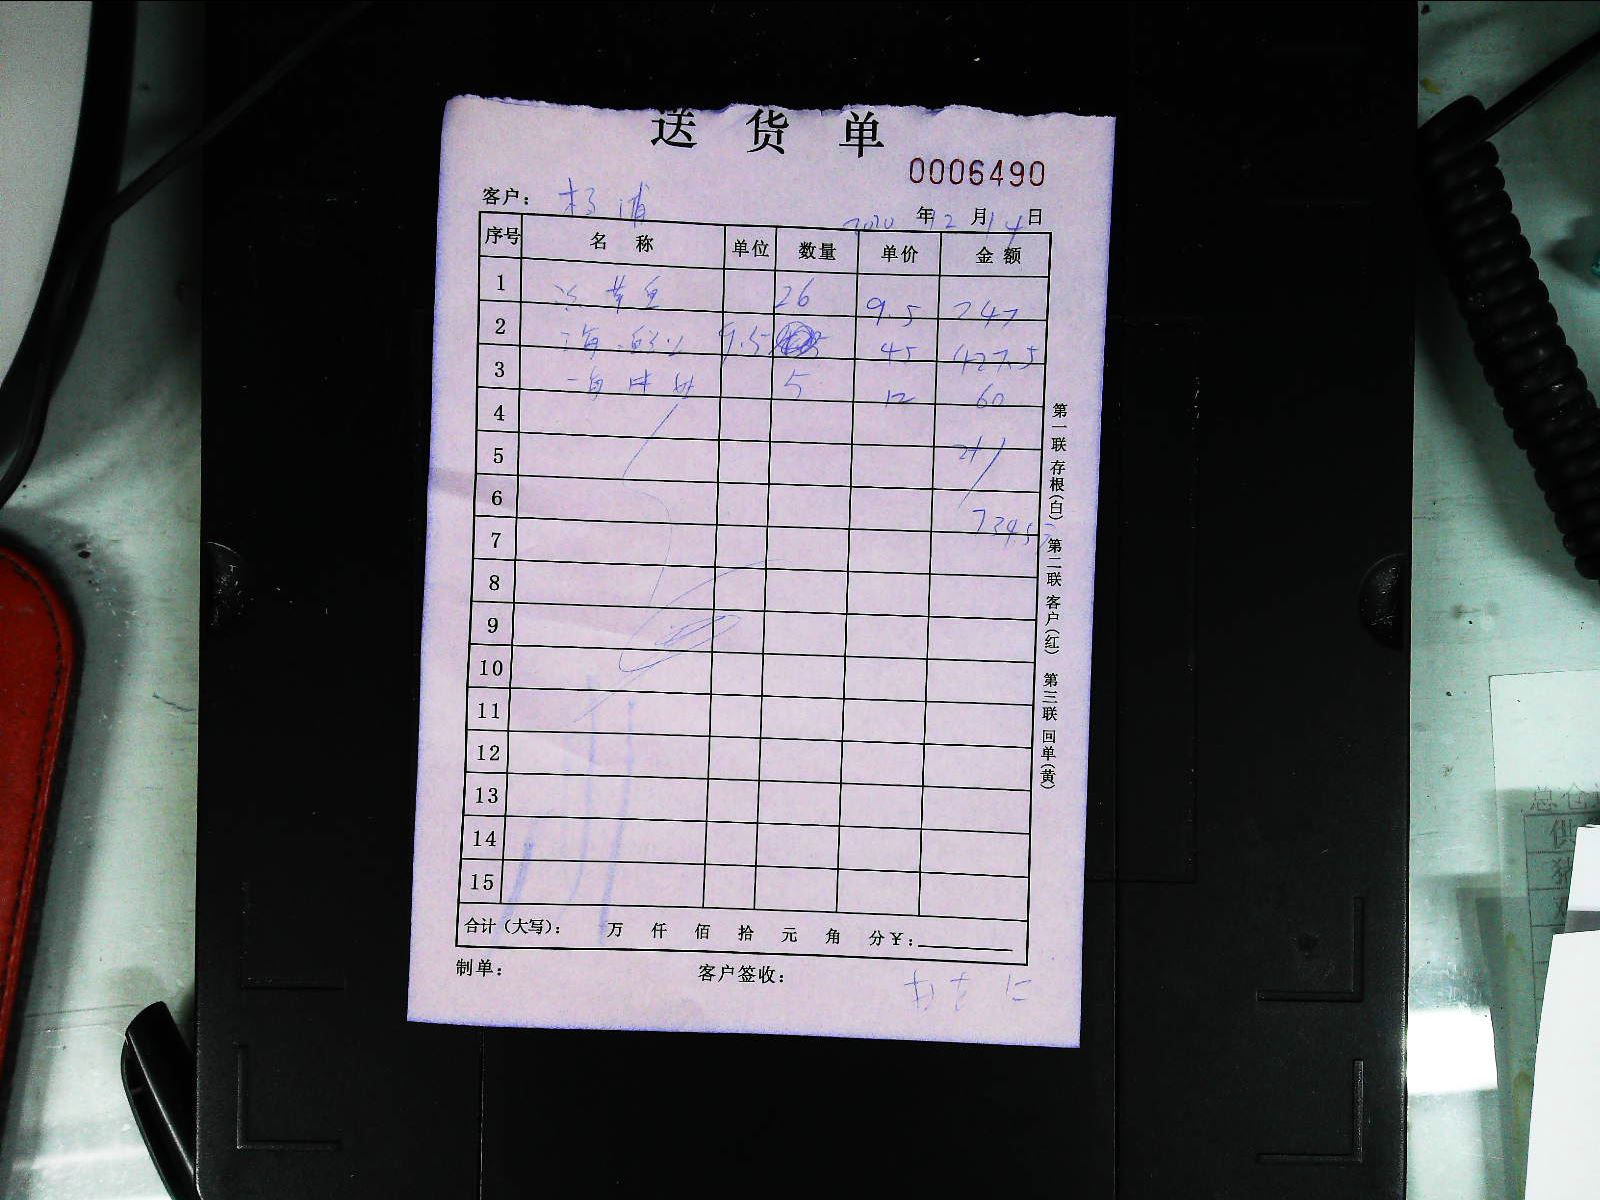 送货单
0006490
客户： 杨浦
2020 年 12 月 14 日
序号 名称 单位 数量 单价 金额
1 冰黄鱼 26 9.5 247
2 9.5 45 427.5
3 5 12 60
4
5
6 734.5元
7
8
9
10
11
12
13
14
15
合计（大写）： 万 仟 佰 拾 元 角 分 ¥：
制单： 客户签收：
第一联 存根（白） 第二联 客户（红） 第三联 回单（黄）
总仓
供
猪